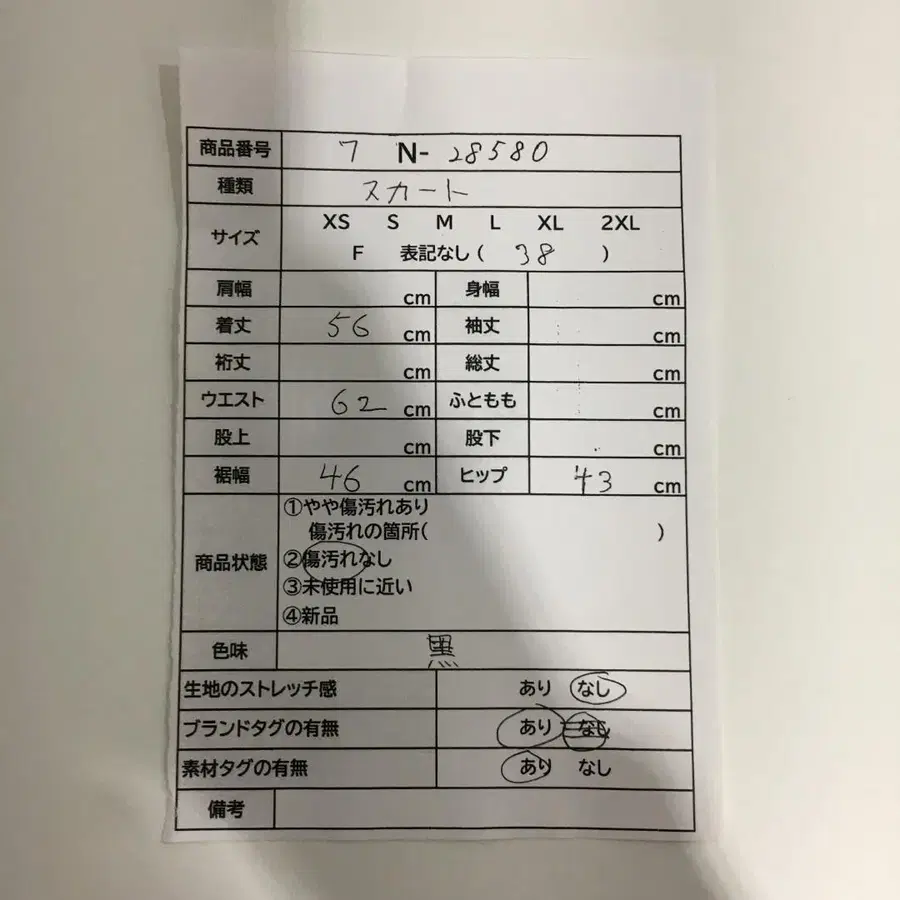 商品番号 7 N- 28580
種類 スカート
サイズ XS S M L XL 2XL
F 表記なし ( 38 )
肩幅 cm 身幅 cm
着丈 56 cm 袖丈 cm
裄丈 cm 総丈 cm
ウエスト 62 cm ふともも cm
股上 cm 股下 cm
裾幅 46 cm ヒップ 43 cm
商品状態 ①やや傷汚れあり
傷汚れの箇所( )
②傷汚れなし
③未使用に近い
④新品
色味 黒
生地のストレッチ感 あり なし
ブランドタグの有無 あり なし
素材タグの有無 あり なし
備考